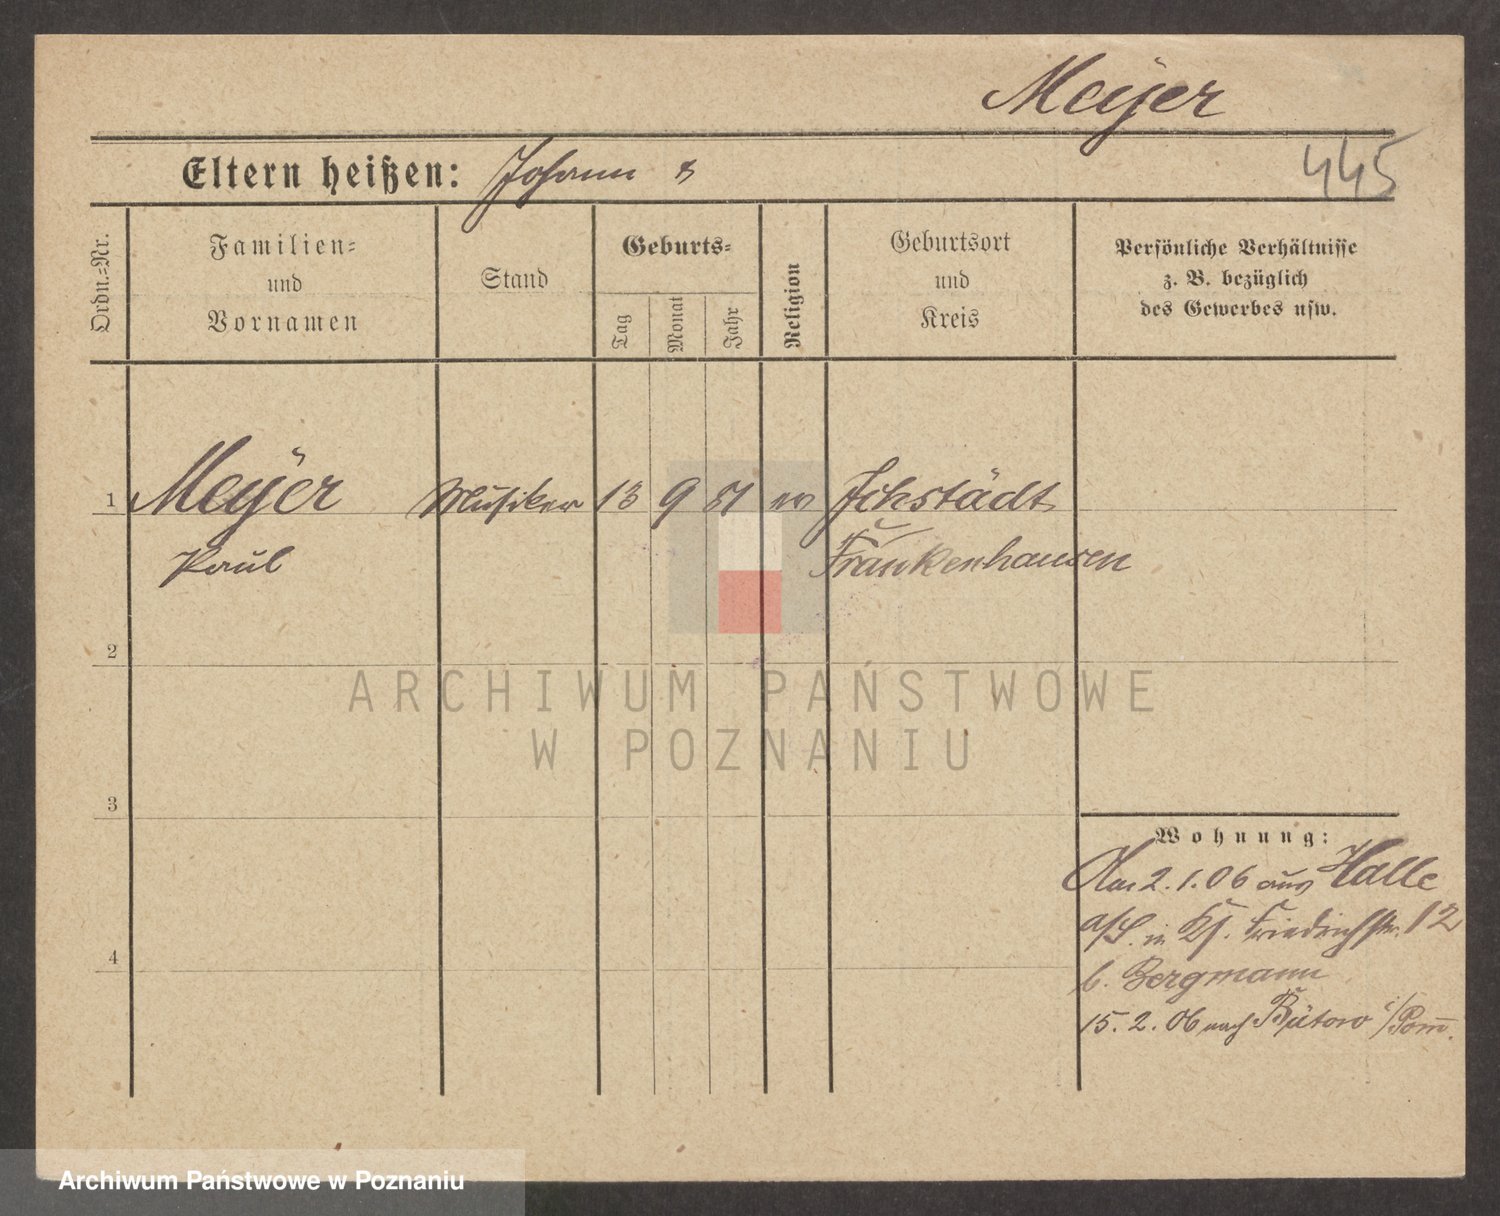 Meyer
445
Eltern heißen: Johann &
Ordn.-Nr.
Familien-
und
Vornamen
Stand
Geburts-
Tag
Monat
Jahr
Religion
Geburtsort
und
Kreis
Persönliche Verhältnisse
z. B. bezüglich
des Gewerbes usw.
1 Meyer Musiker 13 9 81 ev Ichstädt
Paul Frankenhausen
2
3
4
Wohnung:
2.1.06 aus Halle
a/S. in Friedrichstr. 12
b. Bergmann
15.2.06 nach Bütow i/Pom.
ARCHIWUM PAŃSTWOWE
W POZNANIU
Archiwum Państwowe w Poznaniu